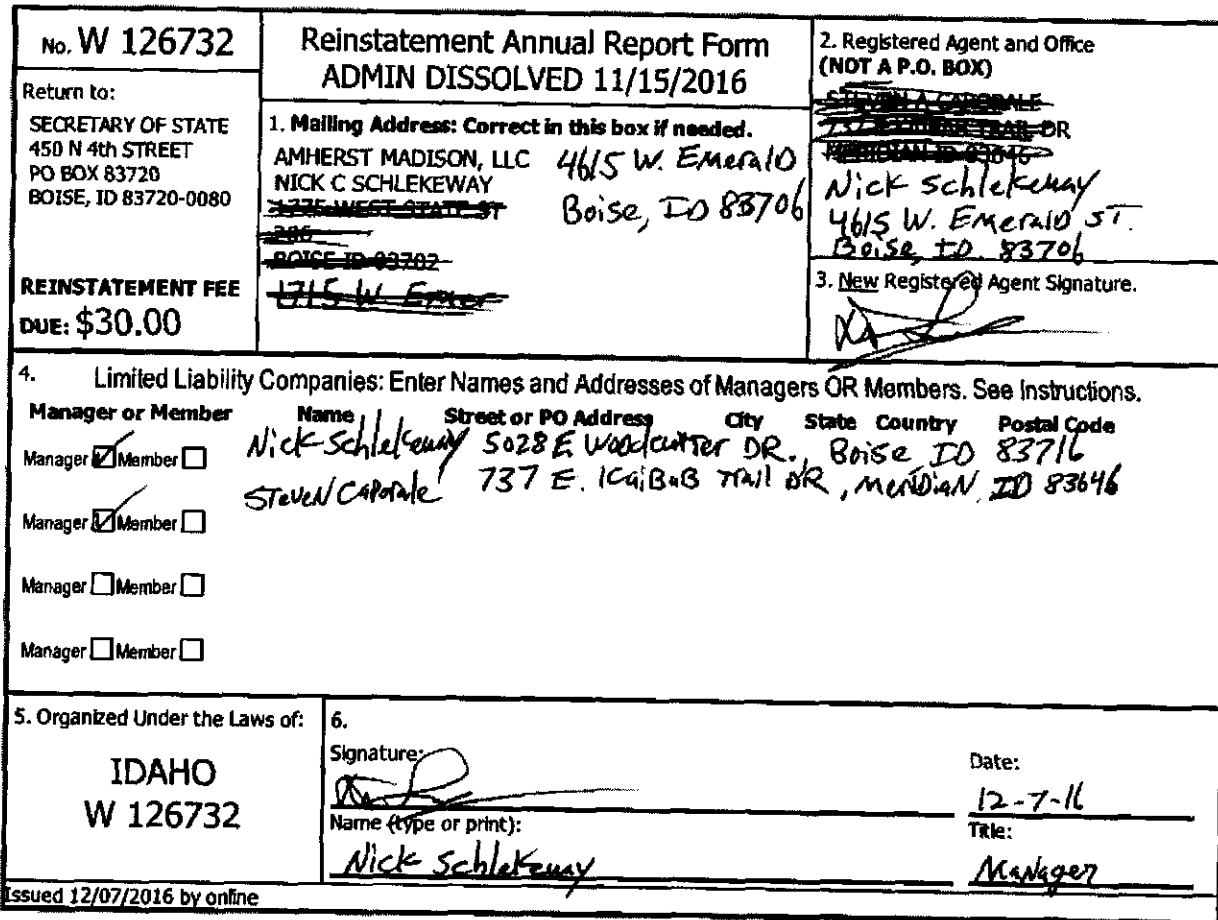 No. W 126732
Return to:
SECRETARY OF STATE
450 N 4th STREET
PO BOX 83720
BOISE, ID 83720-0080
REINSTATEMENT FEE
DUE: $30.00
Reinstatement Annual Report Form
ADMIN DISSOLVED 11/15/2016
1. Mailing Address: Correct in this box if needed.
AMHERST MADISON, LLC 4615 W. Emerald
NICK C SCHLEKEWAY
1775 WEST STATE ST Boise, ID 83706
206
BOISE ID 83702
1715 W
2. Registered Agent and Office
(NOT A P.O. BOX)
STEVEN A CAPORALE
737 TRAIL DR
MERIDIAN ID 83646
Nick Schlekeway
4615 W. Emerald ST.
Boise, ID. 83706
3. New Registered Agent Signature.
4. Limited Liability Companies: Enter Names and Addresses of Managers OR Members. See Instructions.
Manager or Member Name Street or PO Address City State Country Postal Code
Manager Member Nick Schlekeway 5028 E Woodcutter DR., Boise, ID 83716
Manager Member Steven Caporale 737 E. Kaibab Trail DR, Meridian, ID 83646
Manager Member
Manager Member
5. Organized Under the Laws of:
IDAHO
W 126732
6.
Signature:
Date:
12-7-16
Name (type or print):
Nick Schlekeway
Title:
Manager
Issued 12/07/2016 by online